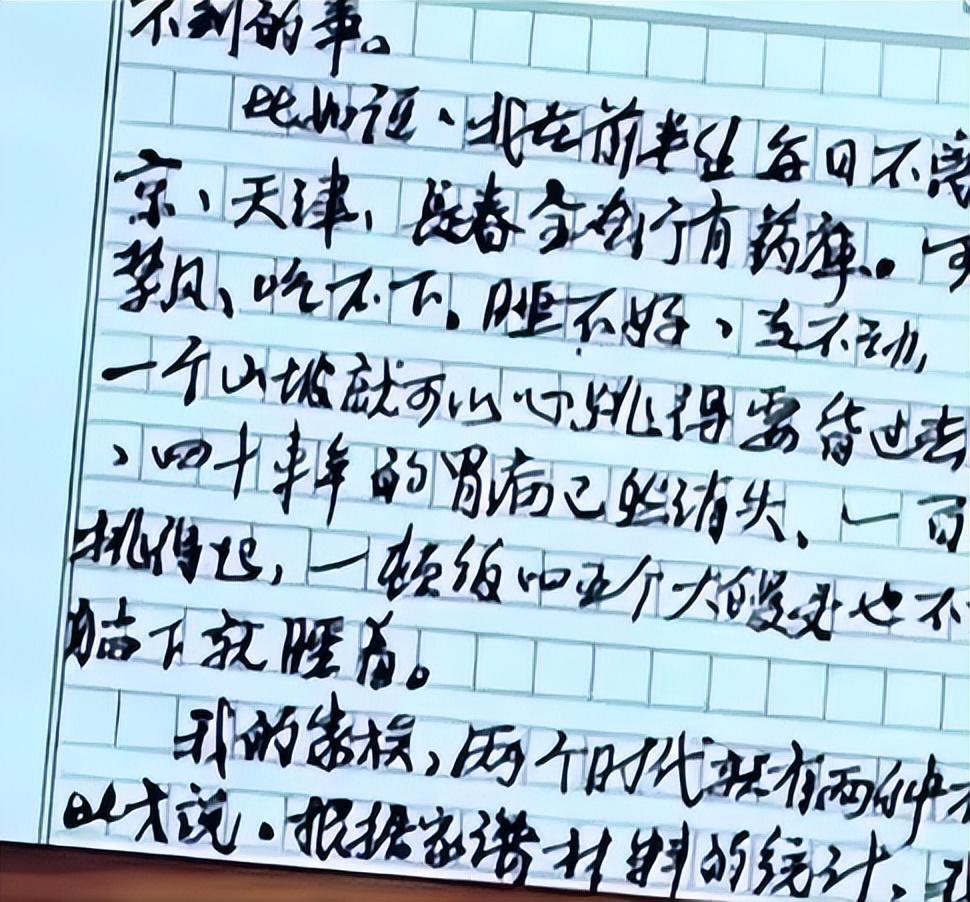 不到的事。
比如说、我在前半生每日不离
京、天津、长春全都有药库。可
禁风、吃不下、睡不好、走不动,
一个山坡就可以心跳得要背过去
、四十来年的胃病已然消失、一百
挑得起,一顿饭四五个大馒头也不
躺下就睡着。
我的家族,两个时代就有两种不
以才说。根据家谱材料的统计、我